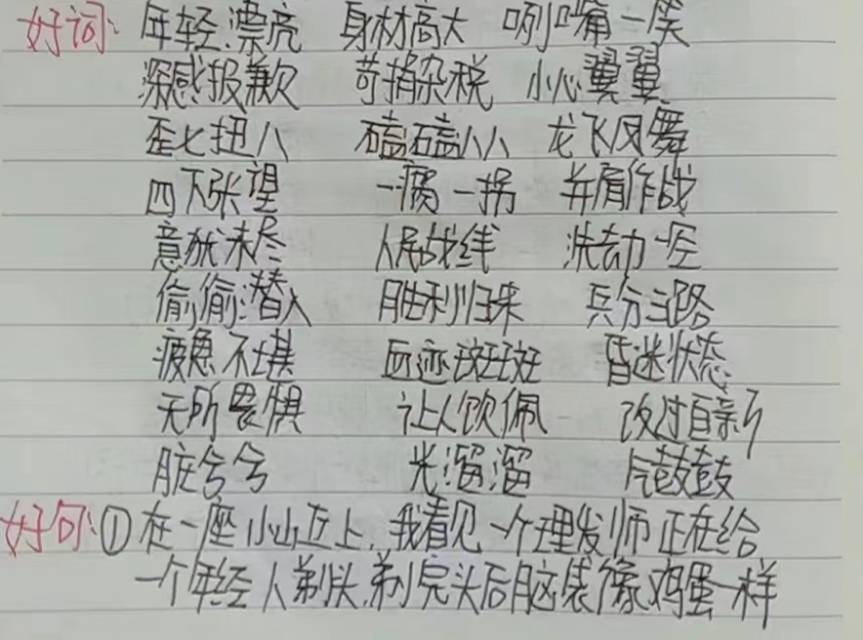 好词: 年轻漂亮 身材高大 咧嘴一笑
深感报歉 苛捐杂税 小心翼翼
歪七扭八 磕磕八八 龙飞凤舞
四下张望 一瘸一拐 并肩作战
意犹未尽 人民战线 洗劫一空
偷偷潜入 胜利归来 兵分三路
疲惫不堪 血迹斑斑 昏迷状态
无所畏惧 让人饮佩 改过自新
脏兮兮 光溜溜 气鼓鼓
好句: ①在一座小山丘上,我看见一个理发师正在给
一个年轻人剃头,剃完头后脑袋像鸡蛋一样